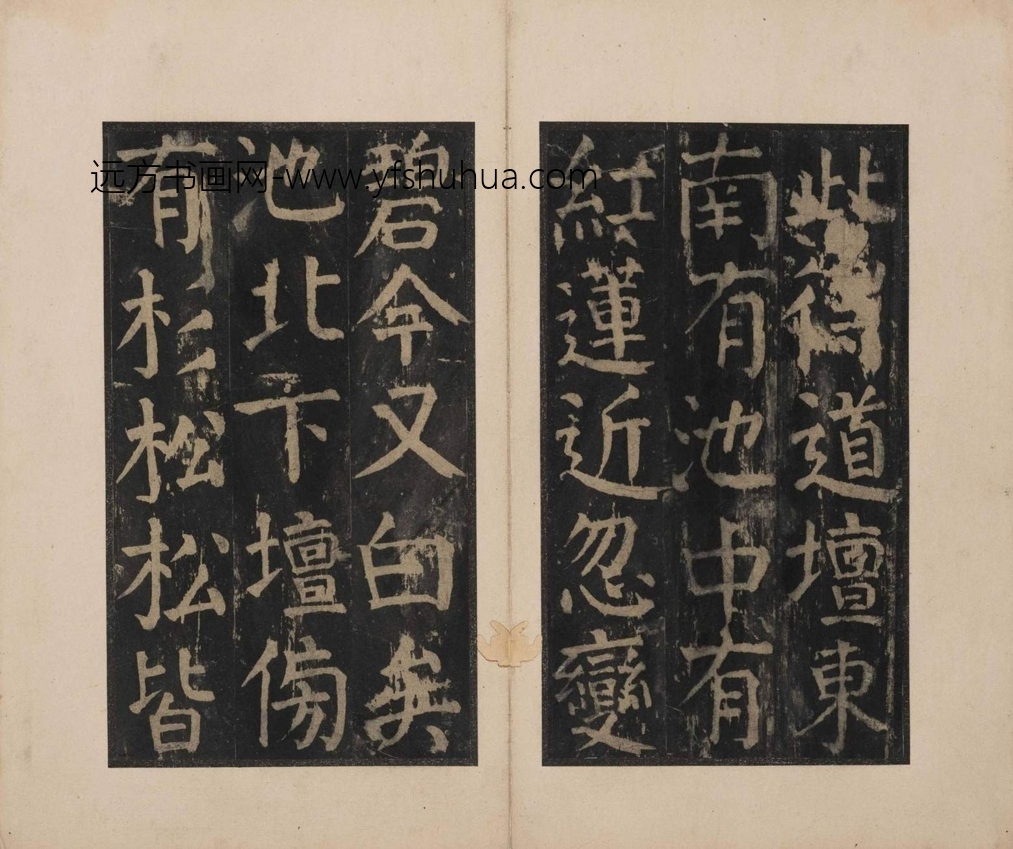 此得道壇東
南有池中有
紅蓮近忽變
碧今又白矣
池北下壇傍
有杉松松皆
远方书画网-www.yfshuhua.com